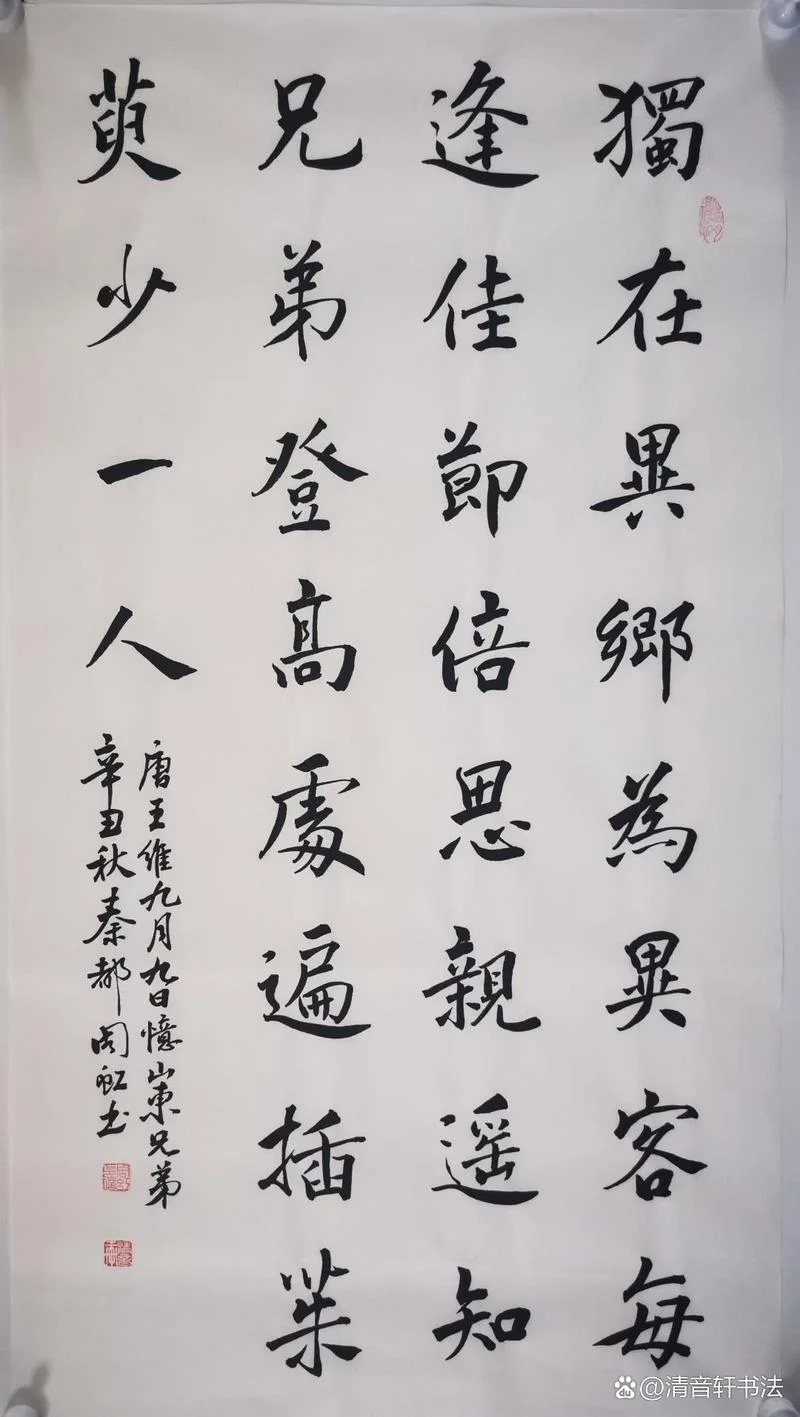 獨在異鄉為異客每
逢佳節倍思親遥知
兄弟登高處遍插茱
萸少一人
唐王維九月九日憶山東兄弟
辛丑秋秦都周虹书
@清音轩书法